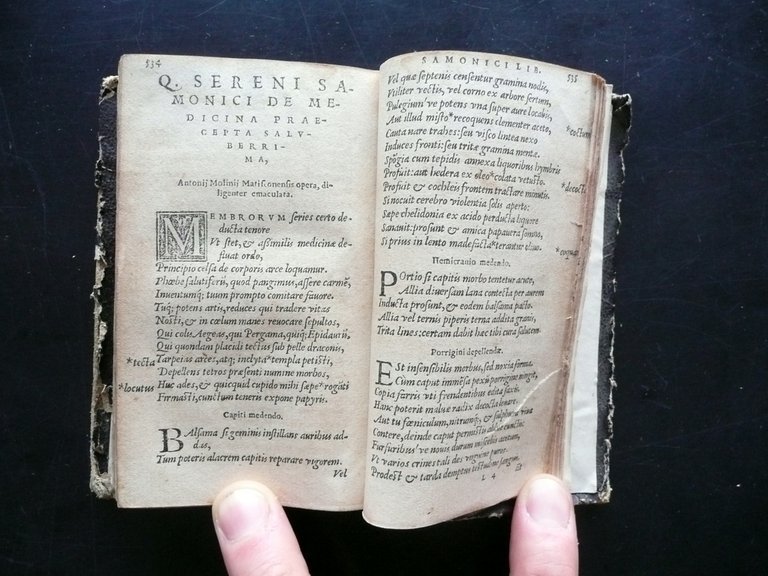 534
Q. SERENI SA-
MONICI DE ME-
DICINA PRAE-
CEPTA SALV-
BERRI-
MA,
Antonij Molinij Matisconensis opera, di-
ligenter emaculata.
MEMBRORVM series certo de-
ducta tenore
Vt stet, & assimilis medicinæ de-
fluat ordo,
Principio celsa de corporis arce loquamur.
Phœbe salutiferũ, quod pangimus, assere carmẽ,
Inuentumq; tuum prompto comitare fauore.
Tuq; potens artis, reduces qui tradere vitas
Nosti, & in cœlum manes reuocare sepultos,
Qui colis Aegeas, qui Pergama, quiq; Epidaurũ,
Qui quondam placidi tectus sub pelle draconis,
*tecta Tarpeias arces, atq; inclyta* templa petisti,
Depellens tetros præsenti numine morbos,
*locutus Huc ades, & quicquid cupido mihi sæpe* rogãti
Firmasti, cunctum teneris expone papyris.
Capiti medendo.
BAlsama si geminis instillans auribus ad-
das,
Tum poteris alacrem capitis reparare vigorem.
Vel
SAMONICI LIB. 535
Vel quæ septenis censentur gramina nodis,
Vtiliter vectis, vel corno ex arbore sertum,
Pulegium´ve potens vna super aure locabis,
Aut illud misto* recoquens clementer aceto, *coctum
Cauta nare trahes: seu visco lintea nexo
Induces fronti: seu tritæ gramina mentæ.
Spõgia cum tepidis annexa liquoribus hymbris
Profuit: aut hedera ex oleo* colata vetusto. *decocta
Profuit & cochleis frontem tractare minutis.
Si nocuit cerebro violentia solis aperto:
Sæpe chelidonia ex acido perducta liquore
Sanauit: prosunt & amica papauera somno,
Si prius in lento madefacta* terantur oliuo.
Hemicranio medendo.
POrtio si capitis morbo tentetur acuto,
Allia diuersam lana contecta per aurem
Inducta prosunt, & eodem balsama pacto.
Allia vel ternis piperis terna addita granis,
Trita lines: certam dabit hæc tibi cura salutem.
Porrigini depellendæ.
EST insensibilis morbus, sed noxia forma.
Cum caput immẽsa pexũ porrigine ningit,
Copia farris vti frendentibus edita saxis.
Hanc poterit maluæ radix decocta leuare.
Aut tu fœniculum, nitrumq;, & sulphura viua
Contere, deinde caput permixta
Furfuribus´ve nouis durum miscebis acetum,
Vt varios crines tali des vngine puros.
Prodest & tarda demptus testudine sanguis.
L 4